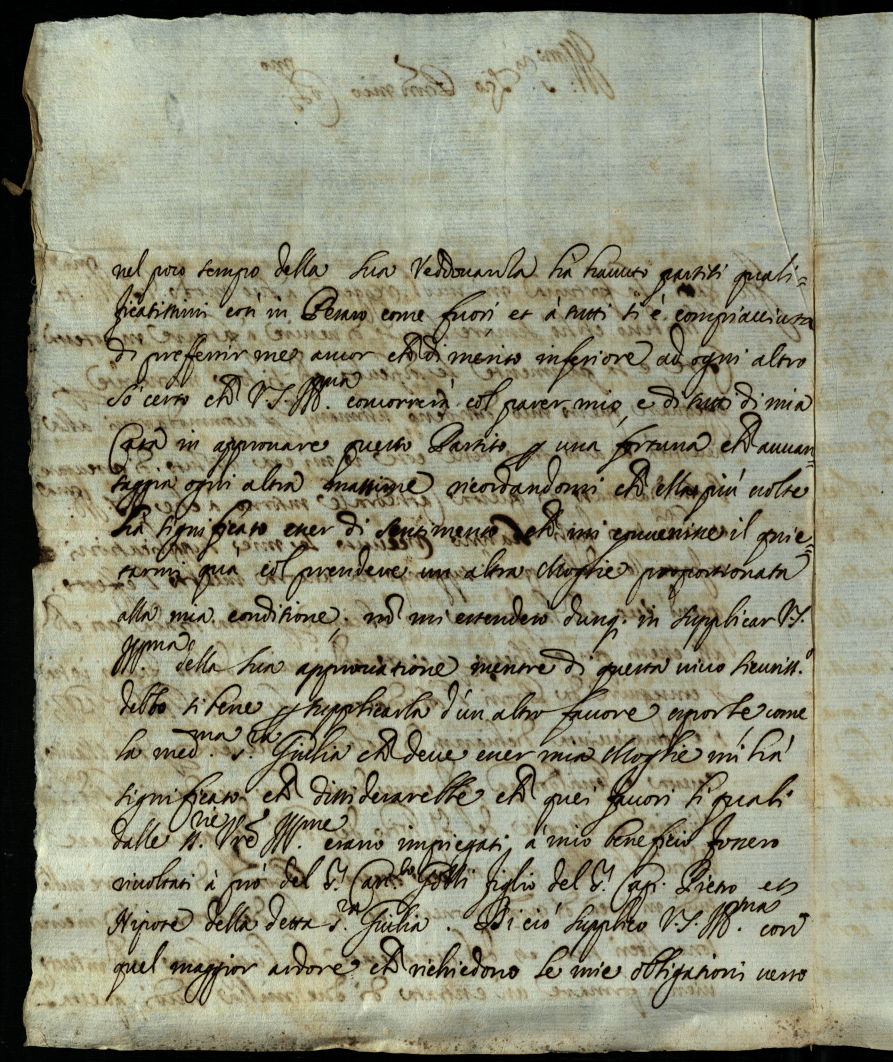 nel poco tempo della sua Veddouanza hà hauuto partiti quali=
ficatissimi così in Pesaro come fuori et à tutti si è compiacciuta
di prefferir me ancor che di merito inferiore ad ogni altro
Sò certo che V.S. Ill.ma concorrerà col parer mio, e di tutti di mia
Casa in approuare questo Partito p una fortuna che auuan=
taggia ogni altra massime ricordandomi che ella più uolte
hà significato esser di sentimento che mi conuenisse il quie=
tarmi qua col prendere un altra Moglie proportionata
alla mia conditione. nō mi estenderò dunq. in supplicar V.S.
Ill.ma della sua approuatione mentre di questa uiuo sicuriss.o
debbo si bene p supplicarla d'un altro fauore esporle come
la med.ma S.ra Giulia che deue esser mia Moglie m'hà
significato che dissiderarebbe che quei fauori li quali
dalle SS.rie Vrē Ill.me erano impiegati à mio beneficio fossero
riuoltati à prò del S.r Cap. Gotti figlio del S.r Cap. Pietro et
Nipote della detta S.ra Giulia. Di ciò supplico V.S. Ill.ma con
quel maggior ardore che richiedono le mie obligationi uerso